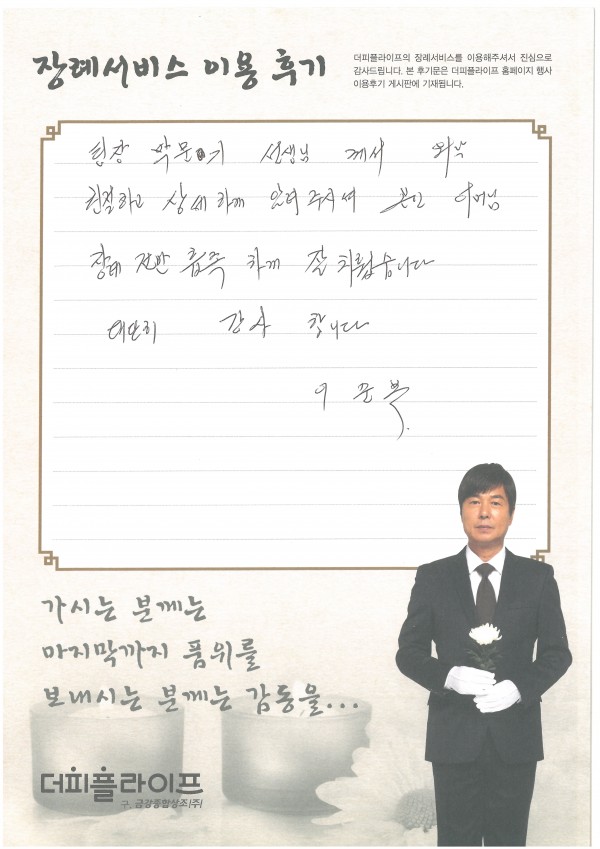 장례서비스 이용 후기
더피플라이프의 장례서비스를 이용해주셔서 진심으로
감사드립니다. 본 후기문은 더피플라이프 홈페이지 행사
이용후기 게시판에 기재됩니다.
팀장 박문기 선생님 께서
친절하고 상세하게 알려 주시며 본인 어머님
장례 전반 흡족 하게 잘 치뤘습니다
대단히 감사 합니다
이
가시는 분께는
마지막까지 품위를
보내시는 분께는 감동을...
더피플라이프
구. 금강종합상조(주)